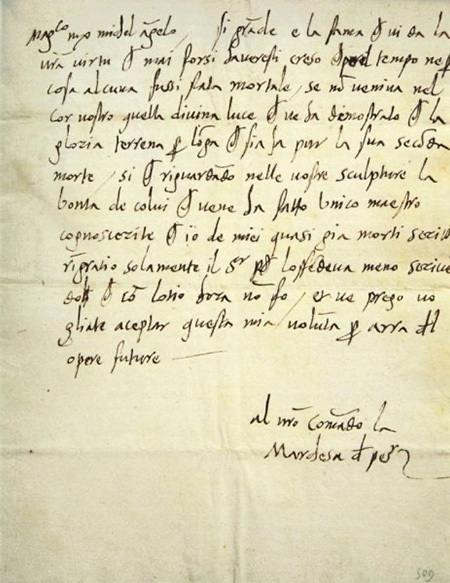 Mag.co mio michel āgelo / si grāde e la fama che vi da la
vr̃a virtu che mai forsi davereſti creso che per tempo ne per
cosa alcuna fussi fata mortale, se nō veniva nel
cor vostro quella divina luce che ve ha demostrato che la
gloria terrena per lōga che sia ha pur la sua secōda
morte, si che riguardādo nelle vostre sculpture la
bonta de colui che vene ha fatto Unico maestro
cognoscerite che io de miei quasi gia morti scritti
rīgratio solamente il Sr per loffedeva meno scrive
che cō lotio hora nō fo, et ve prego vo
gliate aceptar questa mia volūta per arra del
opere future
al vr̃o comādo la
Marchesa de pescr
509